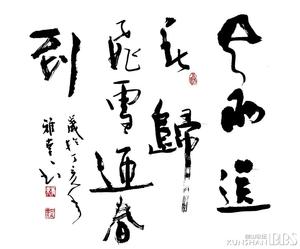 风雨送
春歸
飛雪迎春
到
歲於丁亥年
KUNSHAN BBS